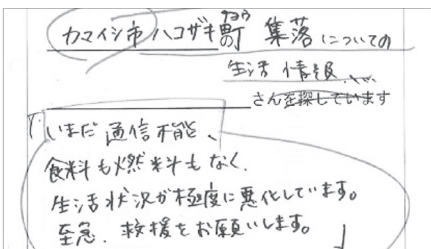 カマイシ市ハコザキ町の 集落についての
生活 情報
さんを探しています
「いまだ通信不能、
食料も燃料もなく、
生活状況が極度に悪化しています。
至急、救援をお願いします。」